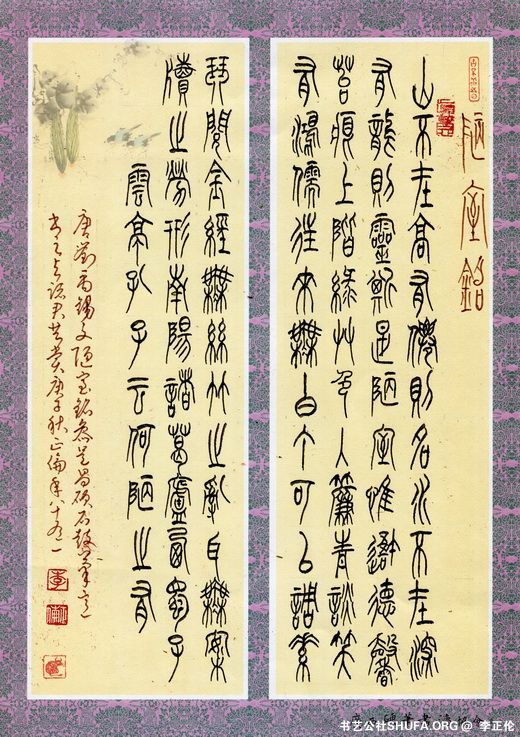 陋室銘
山不在高有僊則名水不在深
有龍則靈斯是陋室惟吾德馨
苔痕上階綠艸色入簾青談笑
有鴻儒往來無白丁可以調素
琴閱金經無絲竹之亂耳無案
牘之勞形南陽諸葛廬西蜀子
雲亭孔子云何陋之有
唐劉禹錫文陋室銘石鼓筆意
书之庚子秋正倫年八十又一
书艺公社SHUFA.ORG @ 李正伦